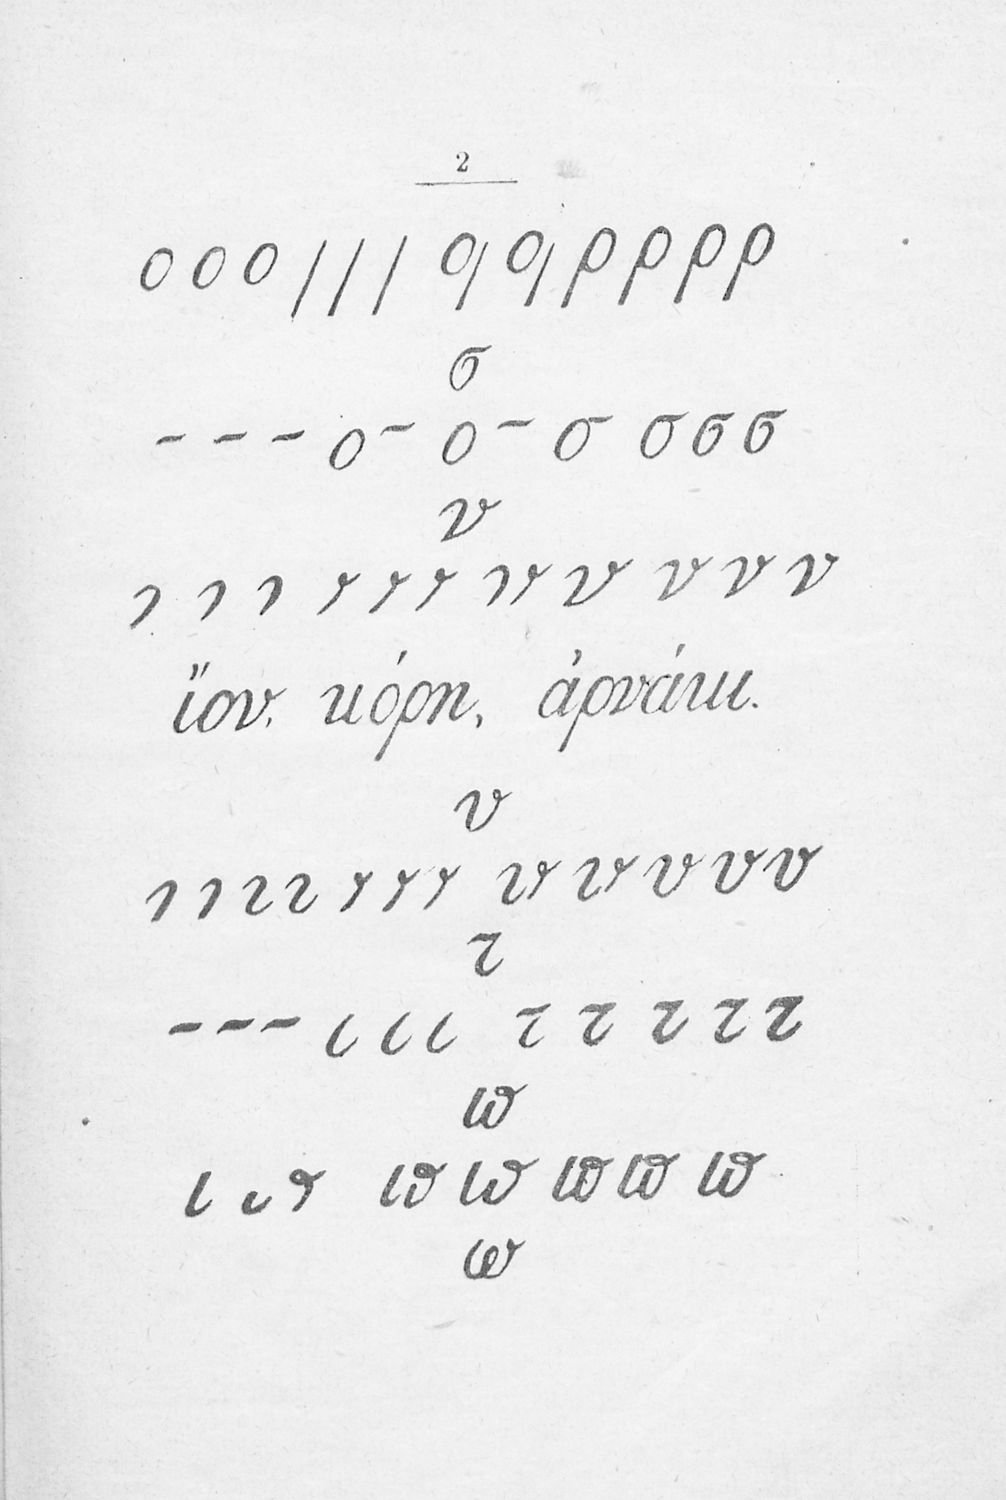 2
ο ο ο / / / ϙ ϙ ρ ρ ρ ρ
σ
- - - ο- ο- σ σ σ σ
ν
ν ν ν ν ν
ἴον. κόρη, ἀρνάκι.
υ
υ υ υ υ υ
τ
- - - ι ι ι τ τ τ τ τ
ϖ
ϖ ϖ ϖ ϖ ϖ
ω